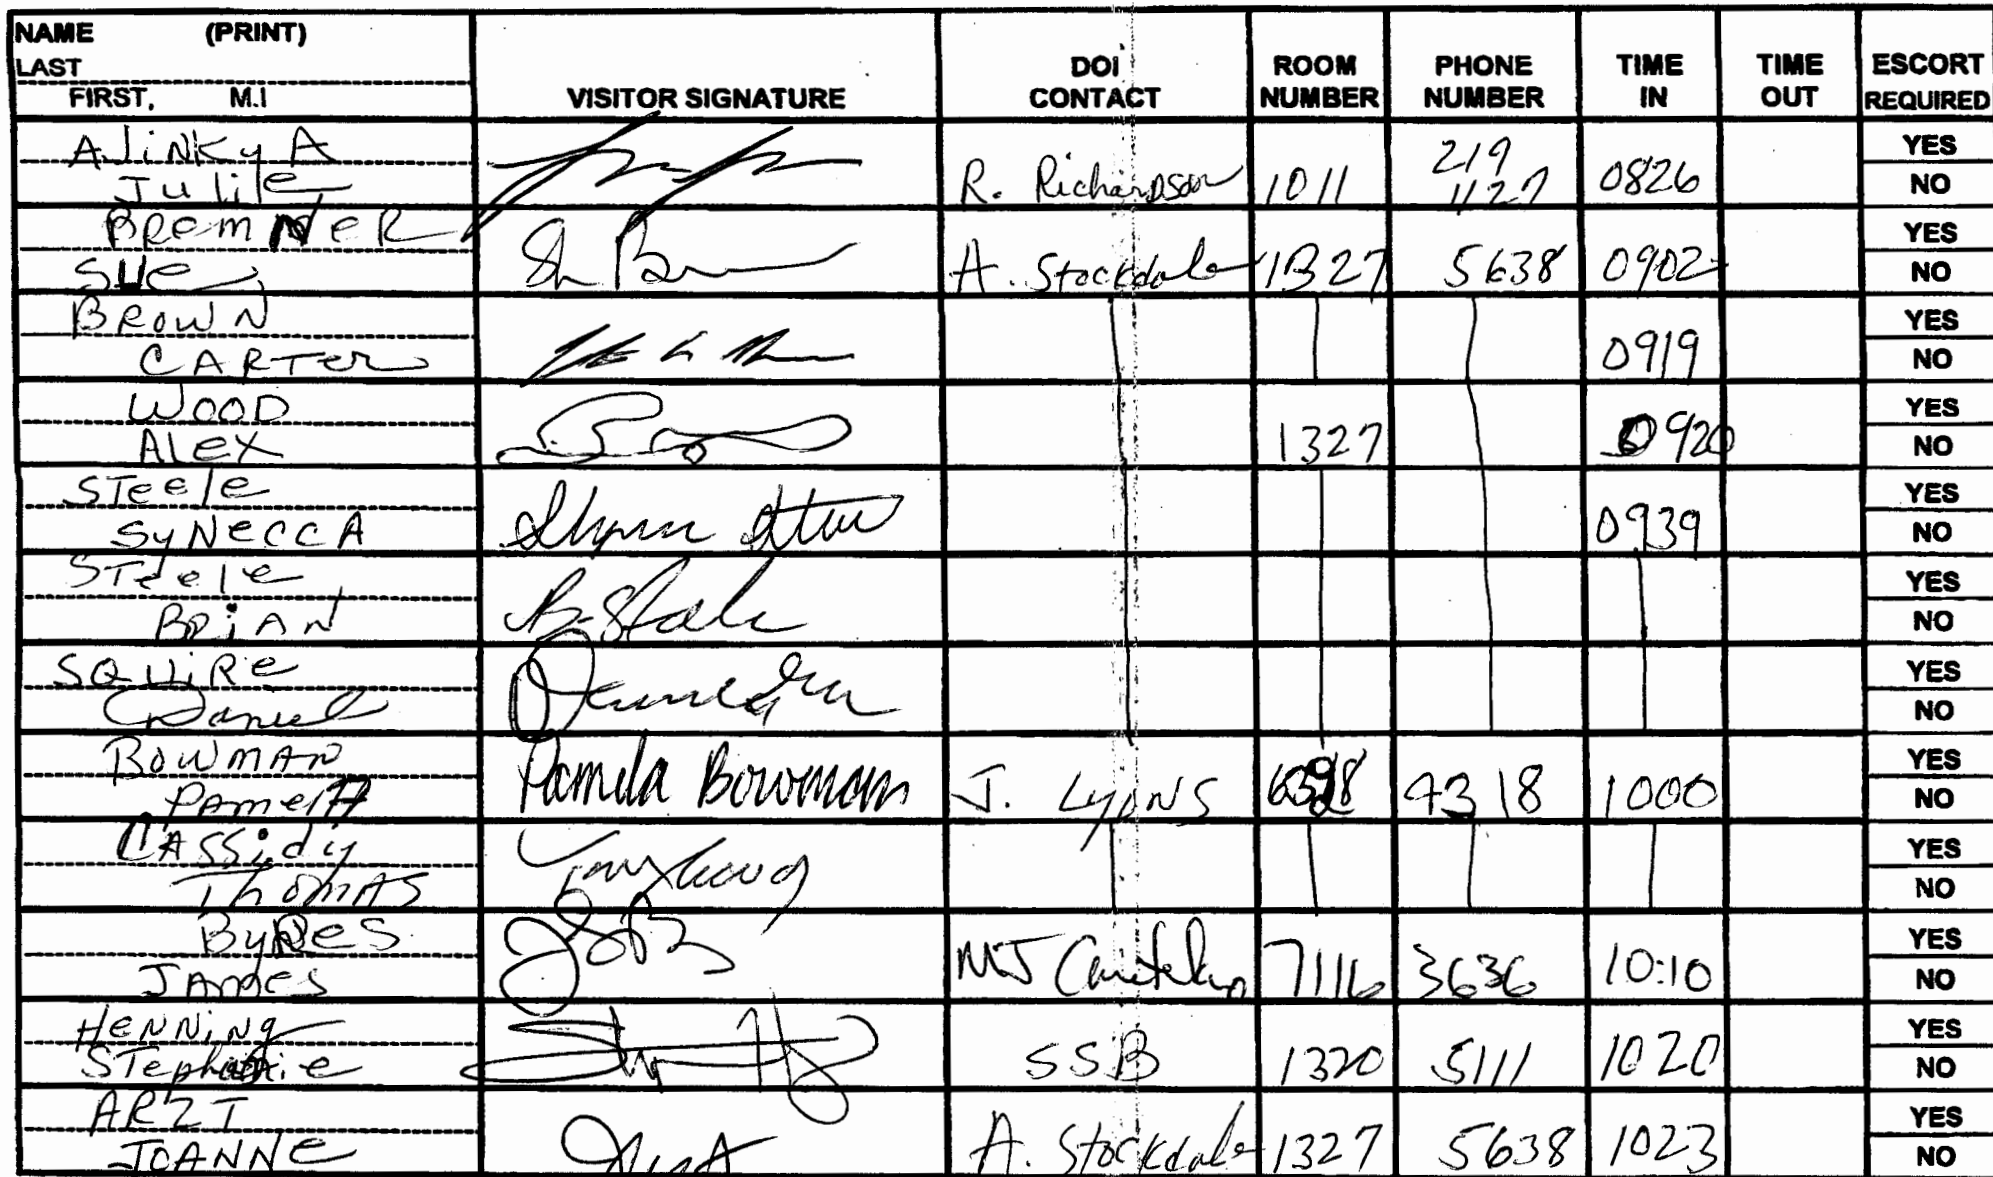 NAME (PRINT)
LAST
FIRST, M.I
VISITOR SIGNATURE
DOI CONTACT
ROOM NUMBER
PHONE NUMBER
TIME IN
TIME OUT
ESCORT REQUIRED
AJiNKyA
Julie
R. Richardson 1011 219 1127 0826
YES
NO
BRemNeR
Sue
A. Stockdale 1327 5638 0902
YES
NO
BROWN
CARTer
0919
YES
NO
WOOD
Alex
1327 0920
YES
NO
STeele
SyNeccA
0939
YES
NO
STeele
BRiAN
B. Steele
YES
NO
SQUiRe
Daniel
YES
NO
BOWMAN
PAmelA
Pamela Bowman J. Lyons 4318 1000
YES
NO
CASSidy
ThomAS
YES
NO
ByRes
JAmes
MJ 7116 3636 10:10
YES
NO
HeNNiNg
STephanie
SSB 1320 5111 1020
YES
NO
ARZT
JOANNe
A. Stockdale 1327 5638 1023
YES
NO